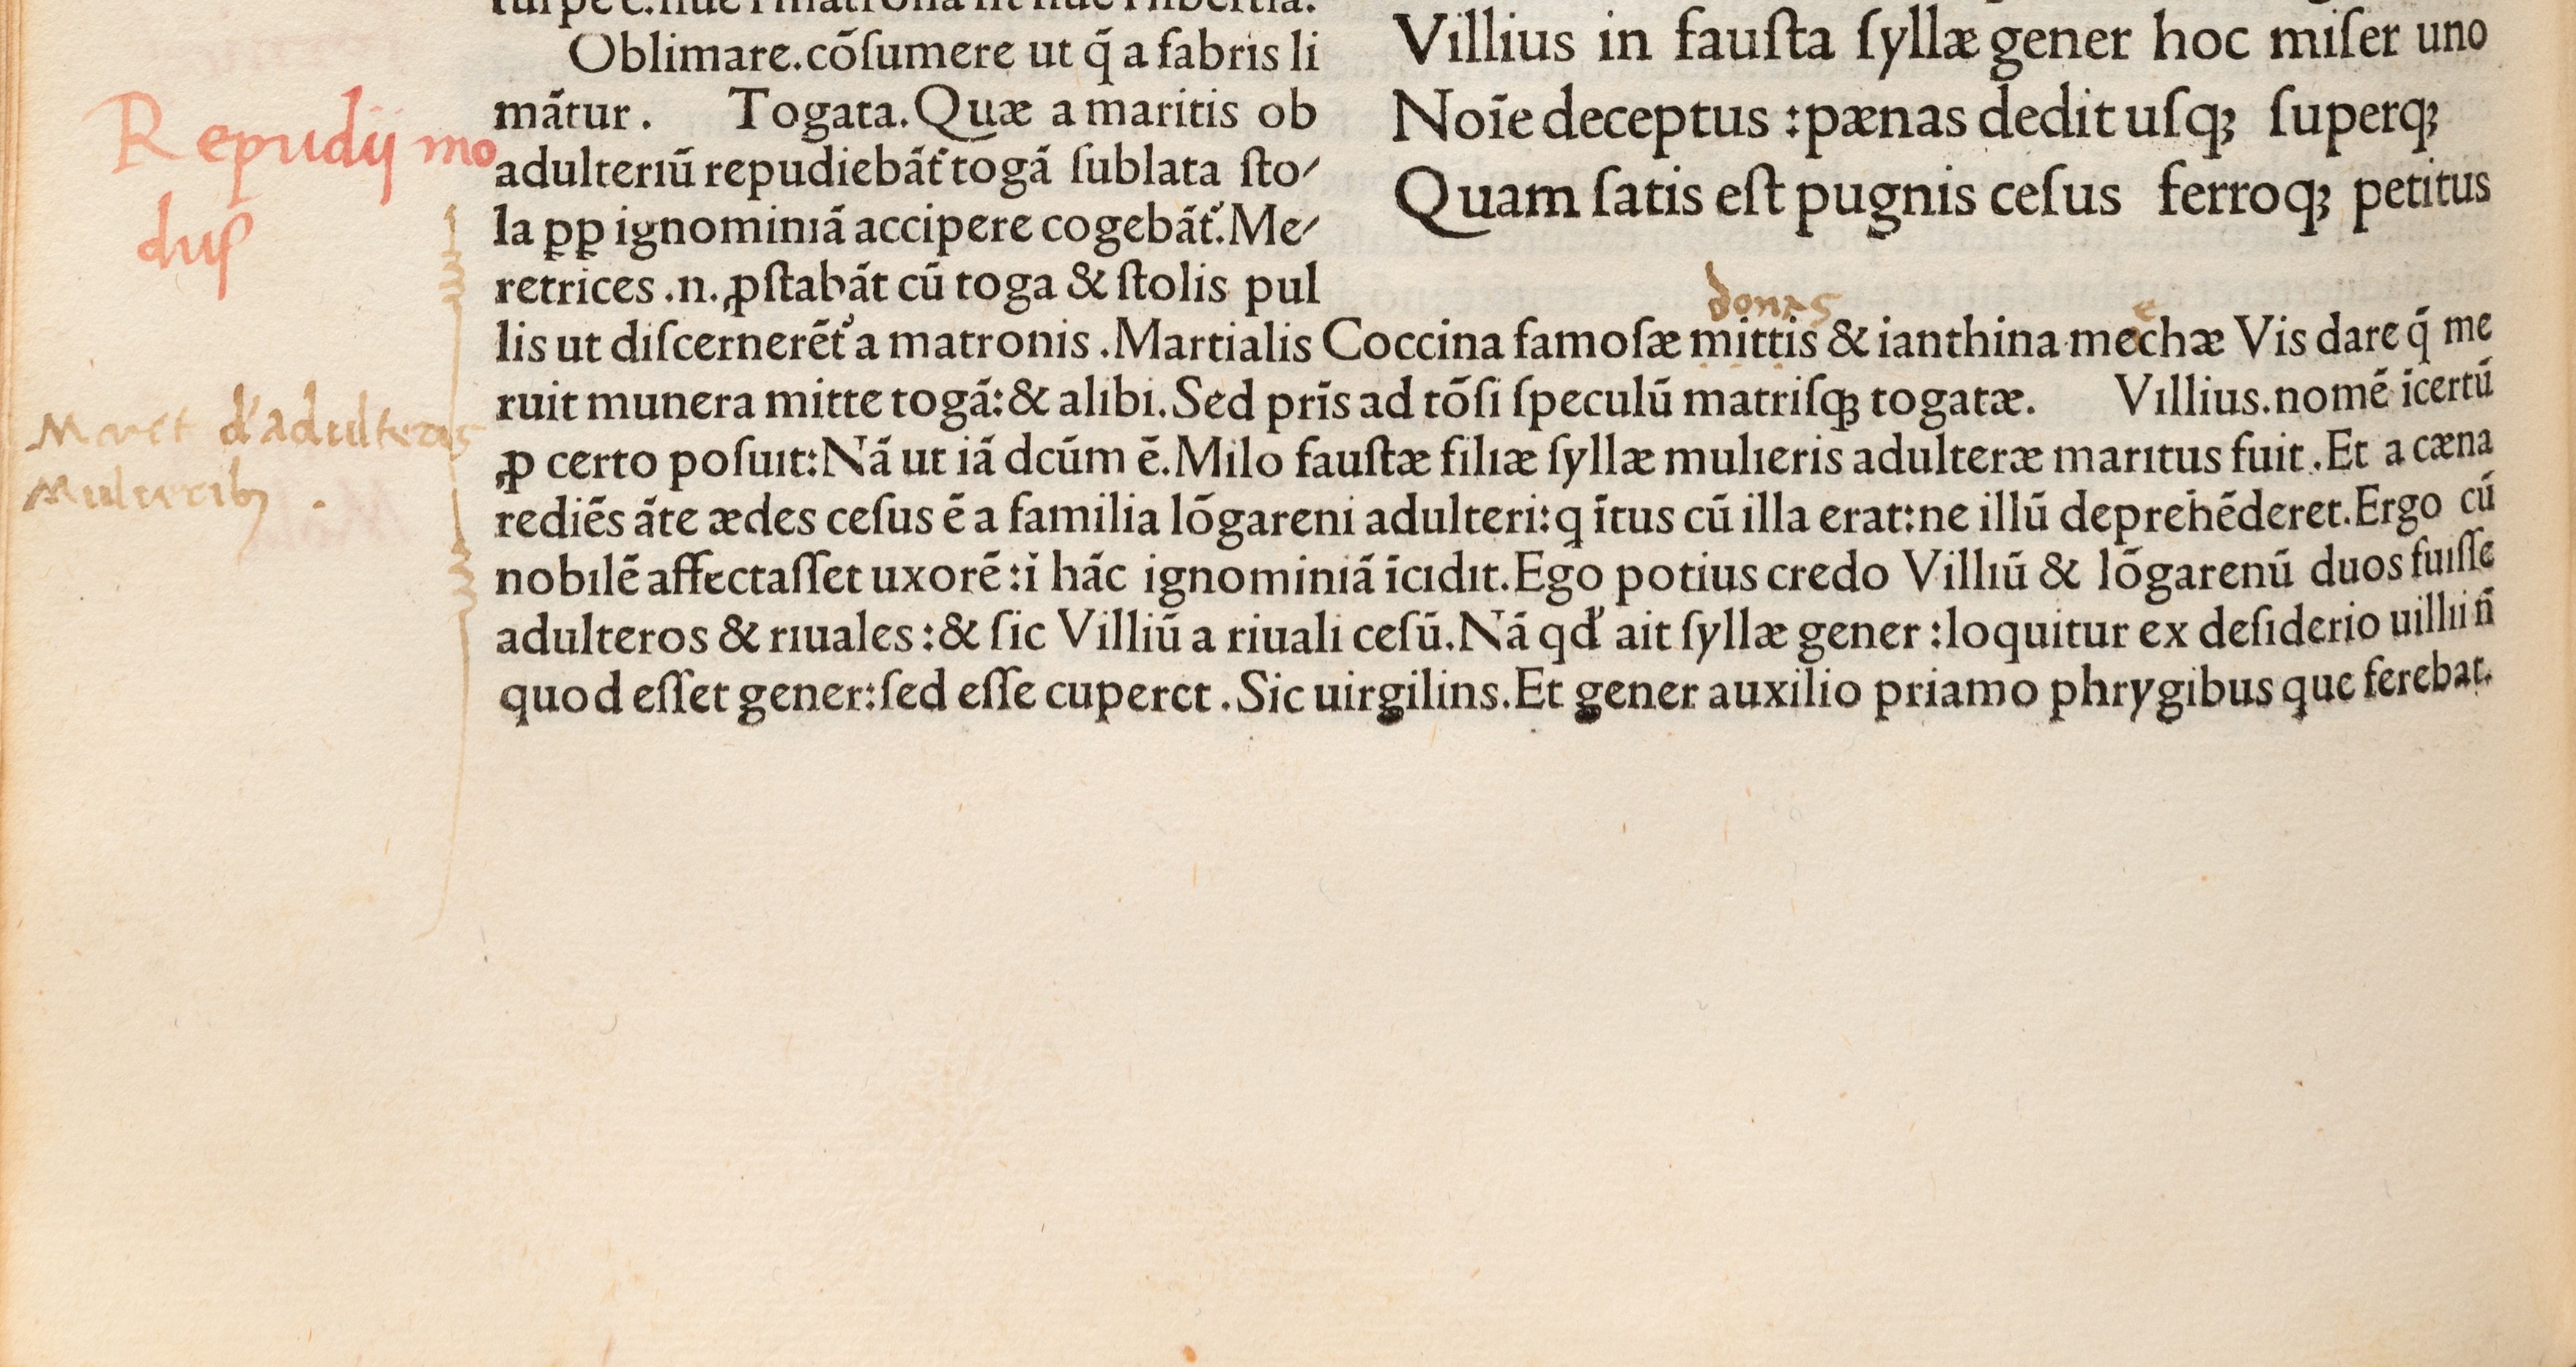 Oblimare.cõſumere ut q̃ a fabris li
mãtur. Togata.Quæ a maritis ob
adulteriũ repudiebãt᷑ togã ſublata ſto⸗
la ꝓp ignominiã accipere cogebãt᷑.Me⸗
retrices .n.ꝓſtabãt cũ toga & ſtolis pul
Villius in fauſta ſyllæ gener hoc miſer uno
Noĩe deceptus :pænas dedit uſqꝫ ſuperqꝫ
Quam ſatis eſt pugnis ceſus ferroqꝫ petitus
lis ut diſcernerẽt᷑ a matronis .Martialis Coccina famoſæ mittis & ianthina mechæ Vis dare q̃ me
ruit munera mitte togã:& alibi.Sed prĩs ad tõſi ſpeculũ matriſqꝫ togatæ. Villius.nomẽ ĩcertũ
ꝓ certo poſuit:Nã ut iã dcũm ẽ.Milo fauſtæ filiæ ſyllæ mulieris adulteræ maritus fuit.Et a cæna
rediẽs ãte ædes ceſus ẽ a familia lõgareni adulteri:q ĩtus cũ illa erat:ne illũ deprehẽderet.Ergo cũ
nobilẽ affectaſſet uxorẽ:ĩ hãc ignominiã ĩcidit.Ego potius credo Villiũ & lõgarenũ duos fuiſſe
adulteros & riuales:& ſic Villiũ a riuali ceſũ.Nã qd̓ ait ſyllæ gener:loquitur ex deſiderio uillii ñ
quod eſſet gener:ſed eſſe cuperet.Sic uirgilins.Et gener auxilio priamo phrygibus que ferebat.
Repudij mo
duſ
donas
e
d' adulteras
Mulieribꝫ .